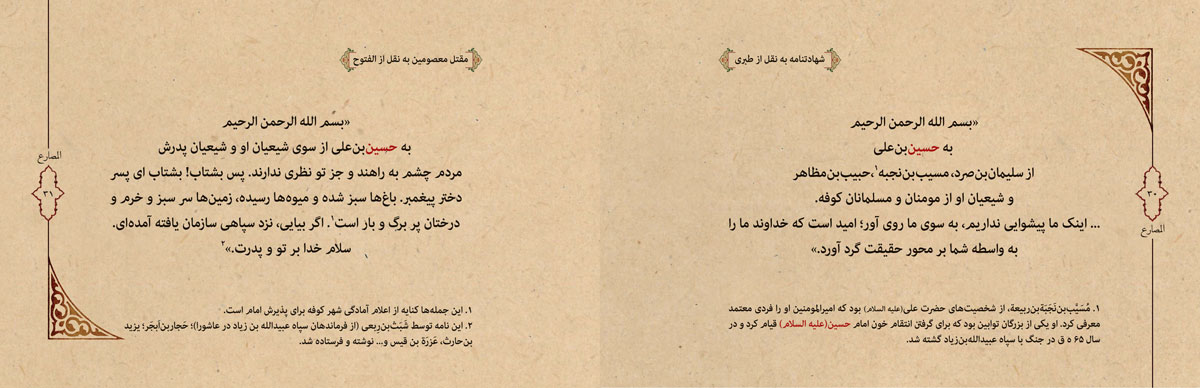 شهادتنامه به نقل از طبری
«بسم الله الرحمن الرحیم
به حسین‌بن‌علی
از سلیمان‌بن‌صرد، مسیب‌بن‌نجبه۱، حبیب‌بن‌مظاهر
و شیعیان او از مومنان و مسلمانان کوفه.
... اینک ما پیشوایی نداریم، به سوی ما روی آور؛ امید است که خداوند ما را
به واسطه شما بر محور حقیقت گرد آورد.»
۱. مُسَیَّب‌بن‌نَجَبَة‌بن‌ربیعة، از شخصیت‌های حضرت علی(علیه السلام) بود که امیرالمومنین او را فردی معتمد
معرفی کرد. او یکی از بزرگان توابین بود که برای گرفتن انتقام خون امام حسین(علیه السلام) قیام کرد و در
سال ۶۵ ه ق در جنگ با سپاه عبیدالله‌بن‌زیاد کشته شد.
۳۰
الصارع
مقتل معصومین به نقل از الفتوح
«بسم الله الرحمن الرحیم
به حسین‌بن‌علی از سوی شیعیان او و شیعیان پدرش
مردم چشم به راهند و جز تو نظری ندارند. پس بشتاب! بشتاب ای پسر
دختر پیغمبر. باغ‌ها سبز شده و میوه‌ها رسیده، زمین‌ها سر سبز و خرم و
درختان پر برگ و بار است۱. اگر بیایی، نزد سپاهی سازمان یافته آمده‌ای.
سلام خدا بر تو و پدرت.»۲
۱. این جمله‌ها کنایه از اعلام آمادگی شهر کوفه برای پذیرش امام است.
۲. این نامه توسط شَبَث‌بن‌رِبعی (از فرماندهان سپاه عبیدالله بن زیاد در عاشورا)؛ حَجار‌بن‌اَبجَر؛ یزید
بن‌حارث، عَزرَة بن قیس و... نوشته و فرستاده شد.
الصارع
۳۱